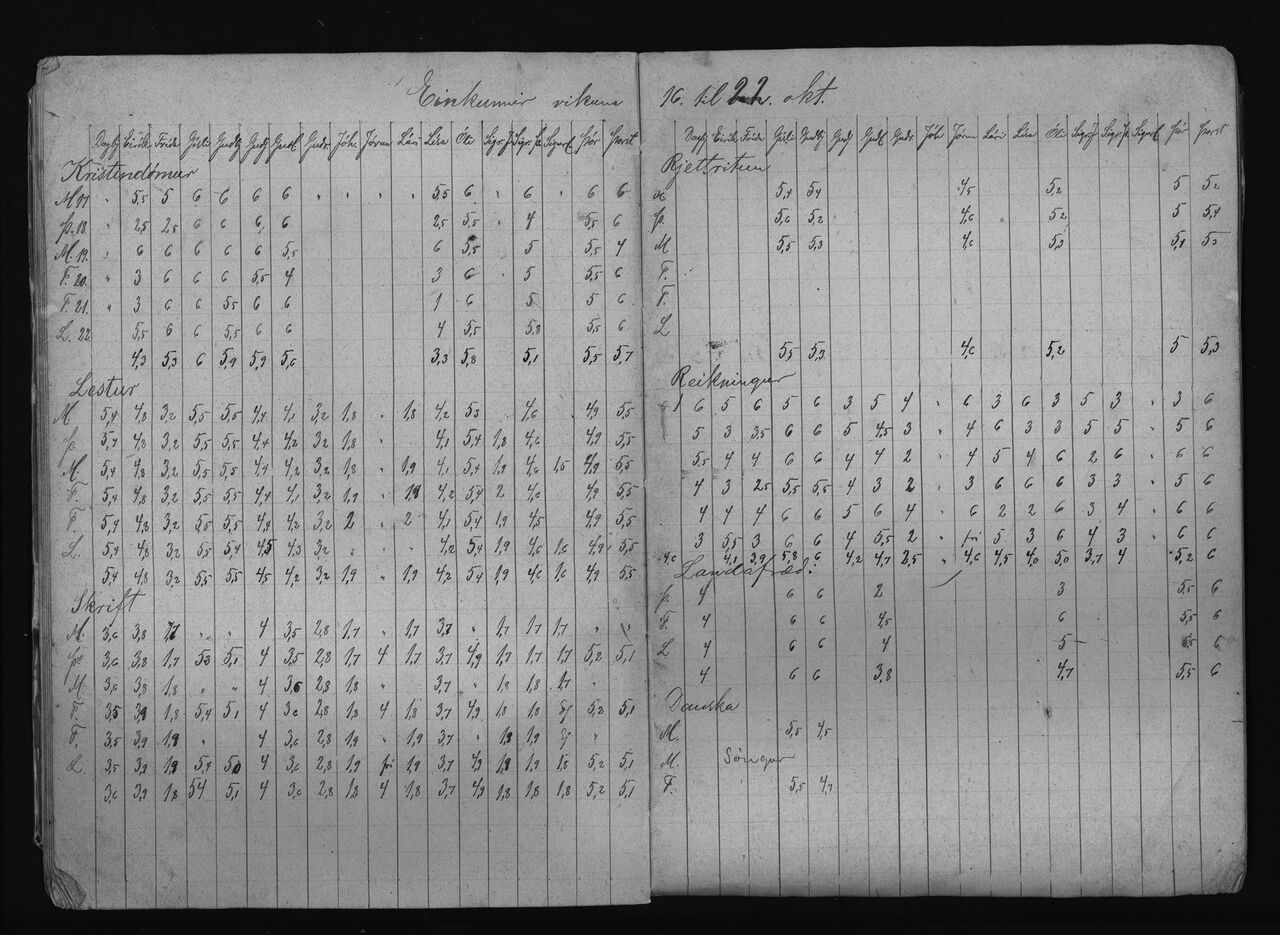 Einkunnir vikuna
Kristindómur
M 17 " 5,5 5 6 6 6 6 " " " " 5,5 6 " 6 " 6 6
Þ. 18. " 2,5 2,5 6 6 6 6 2,5 5,5 " 4 5,5 6
M. 19. " 6 6 6 6 6 5,5 6 5,5 5 5,5 4
F. 20. " 3 6 6 6 5,5 4 3 6 5 5,5 6
F. 21. " 3 6 6 5,5 6 6 1 6 5 5 6
L. 22. 5,5 6 6 5,5 6 6 4 5,5 5,8 5,5 6
4,3 5,3 6 5,9 5,9 5,6 3,3 5,8 5,1 5,5 5,7
Lestur
M 5,4 4,8 3,2 5,5 5,5 4,4 4,1 3,2 1,8 " 1,8 4,2 5,3 4,6 4,9 5,5
Þ. 5,4 4,8 3,2 5,5 5,5 4,4 4,2 3,2 1,8 4,1 5,4 1,8 4,6 4,9 5,5
M. 5,4 4,8 3,2 5,5 5,5 4,4 4,2 3,2 1,8 " 1,9 4,1 5,4 1,9 4,6 1,5 4,9 5,5
F. 5,4 4,8 3,2 5,5 5,5 4,4 4,1 3,2 1,9 " 1,8 4,2 5,4 2 4,6 4,9 5,5
F. 5,4 4,8 3,2 5,5 5,5 4,4 4,2 3,2 2 " 2 4,1 5,4 1,9 4,5 4,9 5,5
L. 5,4 4,8 3,2 5,5 5,4 4,5 4,3 3,2 " " 4,2 5,4 1,9 4,6 1,6 4,9 5,5
5,4 4,8 3,2 5,5 5,5 4,5 4,2 3,2 1,9 " 1,9 4,2 5,4 1,9 4,6 1,6 4,9 5,5
Skrift
M. 3,6 3,8 1,7 " " 4 3,5 2,8 1,7 " 1,7 3,7 " 1,7 1,7 1,7 " "
Þ. 3,6 3,8 1,7 5,3 5,1 4 3,5 2,8 1,7 4 1,7 3,7 4,9 1,7 1,7 1,7 5,2 5,1
M. 3,6 3,8 1,8 " " 4 3,6 2,8 1,8 " 3,7 " 1,8 1,8 1,7 "
F. 3,5 3,9 1,8 5,4 5,1 4 3,6 2,8 1,8 4 1,8 3,7 4,9 1,8 1,8 5,2 5,1
F. 3,5 3,9 1,8 " 4 3,6 2,8 1,9 " 1,9 3,7 " 1,8 1,9 "
L. 3,5 3,9 1,8 5,4 5,0 4 3,6 2,8 1,9 frí 1,9 3,7 4,9 1,8 1,9 1,8 5,2 5,1
3,6 3,9 1,8 5,4 5,1 4 3,6 2,8 1,8 4 1,8 3,7 4,9 1,8 1,8 1,8 5,2 5,1
16. til 22. okt.
Rjettritun
M 5,4 5,4 4,5 5,2 5 5,2
Þ. 5,6 5,2 4,6 5,2 5 5,4
M 5,5 5,3 4,6 5,3 5,1 5,3
F.
F.
L
5,5 5,3 4,6 5,2 5 5,3
Reikningur
6 5 6 5 6 3 5 4 " 6 3 6 3 5 3 " 3 6
5 3 3,5 6 6 5 4,5 3 " 4 6 3 3 5 5 " 5 6
5,5 4 4 6 6 4 4 2 " 4 5 4 6 2 6 " 6 6
4 3 2,5 5,5 5,5 4 3 2 " 3 6 6 6 3 3 " 5 6
4 4 4 6 6 5 6 4 " 6 2 2 6 3 4 " 6 6
3 5,5 3 6 6 4 5,5 2 " frí 5 3 6 4 3 " 6 6
4,6 4,1 3,9 5,8 6 4,2 4,7 2,5 " 4,6 4,5 4,0 5,0 3,7 4 " 5,2 6
Landafræð.
Þ. 4 6 6 2 3 5,5 6
F. 4 6 6 4,5 6 5,5 6
L 4 6 6 4 5 5,5 6
4 6 6 3,8 4,7 5,5 6
Danska
M. 5,5 4,5
M. Söngur
F. 5,5 4,7